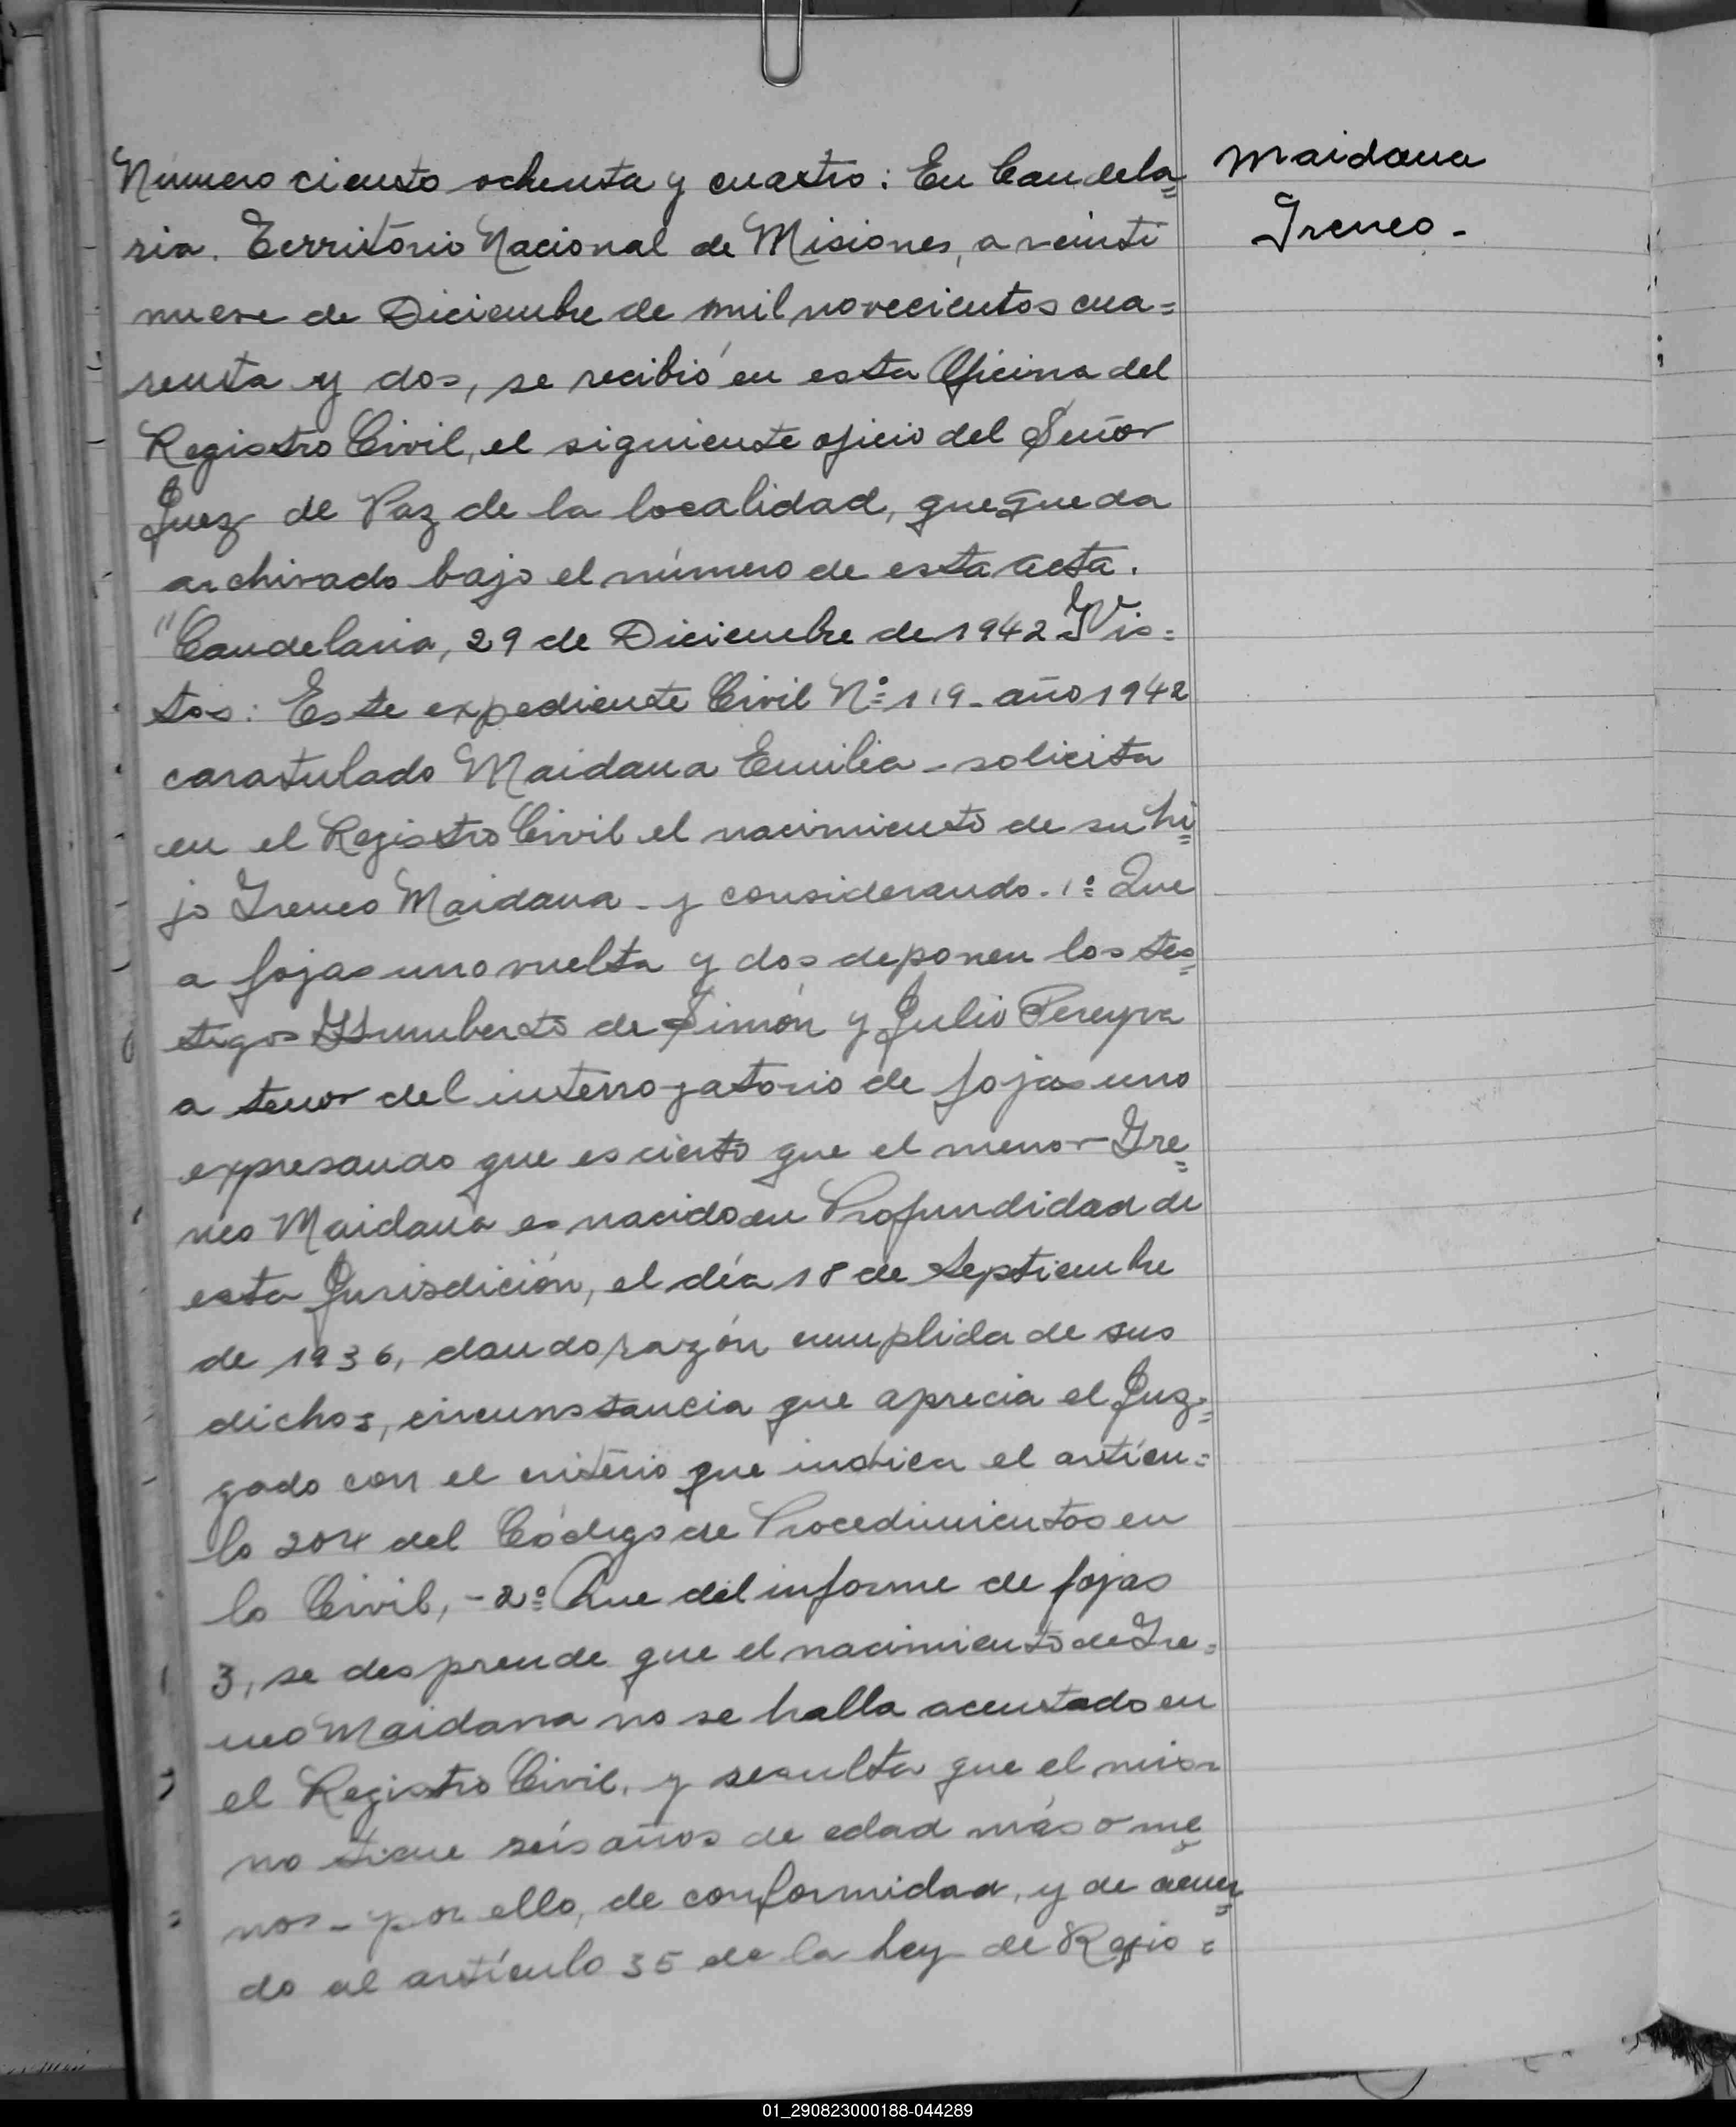 Número ciento ochenta y cuatro: En Candela=
ria. Territorio Nacional de Misiones, a veinti
nueve de Diciembre de mil novecientos cua=
renta y dos, se recibió en esta Oficina del
Registro Civil, el siguiente oficio del Señor
Juez de Paz de la localidad, que queda
archivado bajo el número de esta acta.
"Candelaria, 29 de Diciembre de 1942 Y Vis=
tos: Este expediente Civil Nº 119 - año 1942
caratulado Maidana Emilia - solicita
en el Registro Civil el nacimiento de su hi=
jo Ireneo Maidana - y considerando. 1º Que
a fojas uno vuelta y dos deponen los tes=
tigos Humberto de Simón y Julio Pereyra
a tenor del interrogatorio de fojas uno
expresando que es cierto que el menor Ire=
neo Maidana es nacido en Profundidad de
esta Jurisdición, el día 18 de Septiembre
de 1936, dando razón cumplida de sus
dichos, circunstancia que aprecia el Juz=
gado con el criterio que indica el artícu=
lo 204 del Código de Procedimientos en
lo Civil, - 2º Que del informe de fojas
3, se desprende que el nacimiento de Ire=
neo Maidana no se halla acentado en
el Registro Civil, y resulta que el mis=
mo tiene seis años de edad más o me=
nos - por ello, de conformidad, y de acuer=
do al artículo 35 de la Ley de Regis=
Maidana
Ireneo -
01_290823000188-044289